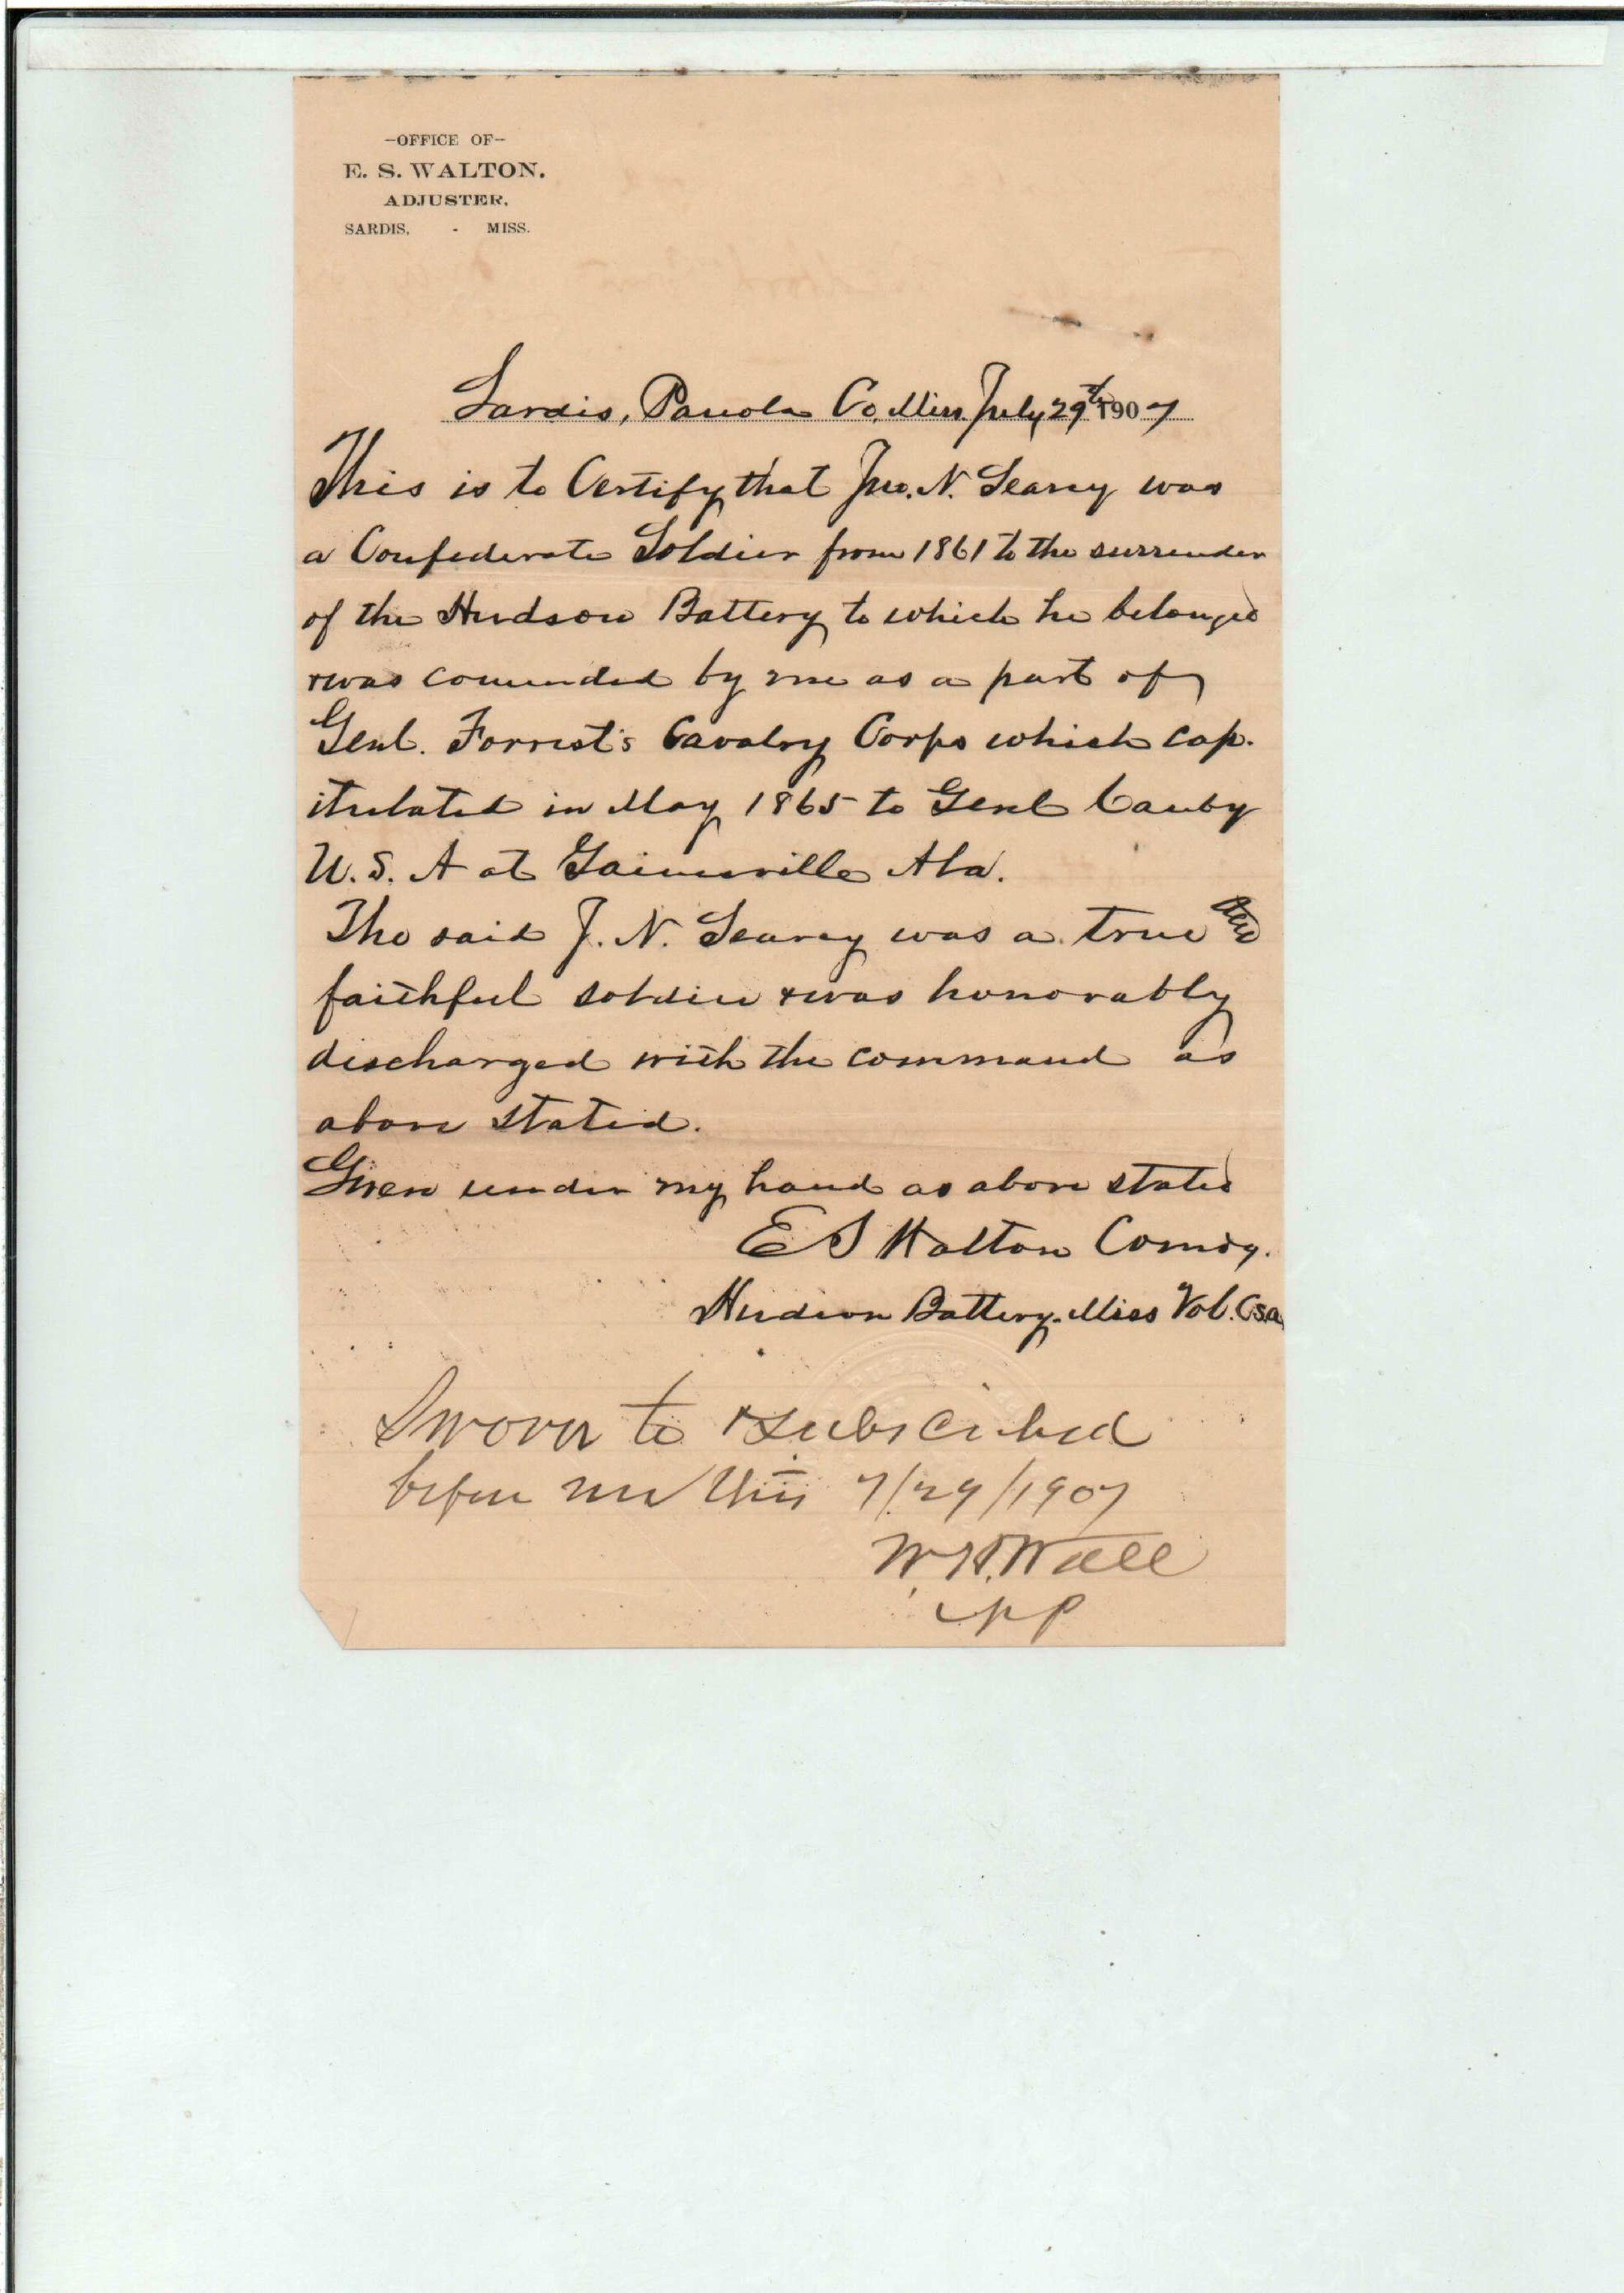 -OFFICE OF-
E. S. WALTON.
ADJUSTER,
SARDIS, - MISS.
Sardis, Panola Co, Miss. July 29th 1907
This is to Certify that Jno. N. Searcy was
a Confederate Soldier from 1861 to the surrender
of the Hudson Battery to which he belonged
& was comended by me as a part of
Genl. Forrest's Cavalry Corps which cap-
itulated in May 1865 to Genl Canby
U. S. A at Gainesville Ala.
The said J. N. Searcy was a true and
faithful soldier & was honorably
discharged with the command as
above stated.
Given under my hand as above stated
E S Walton Comdg.
Hudson Battery. Miss Vol. Csa
Sworn to & subscribed
before me this 7/29/1907
W. H. Wall